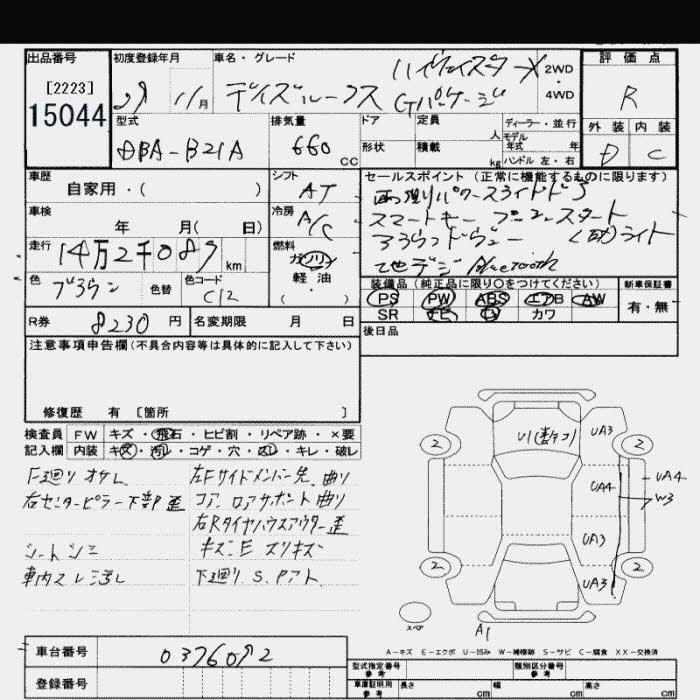 出品番号
[2223]
15044
初度登録年月
29 11月
車名・グレード
ハイウェイスター X
デイズルークス Gパッケージ
2WD
4WD
評価点
R
外装 内装
D C
型式
DBA-B21A
排気量
660 CC
ドア
形状
定員 人
積載 kg
ディーラー・並行
モデル
年式 年
ハンドル 左・右
車歴
自家用・( )
車検
年 月( 日)
走行
14万2千089 km
色
ブラウン
色替
色コード
C12
シフト
AT
冷房
A/C
燃料
ガソリン
軽油
・
( )
セールスポイント (正常に機能するものに限ります)
両側パワースライドドア
スマートキー プッシュスタート
アラウンドビュー (自動)ライト
地デジ Bluetooth
装備品(純正品に限り〇をつけてください)
PS PW ABS エアB AW
SR ナビ TV カワ
新車保証書
有・無
後日品
R券
8230 円
名変期限 月 日
注意事項申告欄(不具合内容等は具体的に記入して下さい)
修復歴 有 [箇所 ]
検査員 FW キズ・飛石・ヒビ割・リペア跡・×要
記入欄 内装 キズ・汚レ・コゲ・穴・スレ・キレ・破レ
F廻り オサレ
右センターピラー下部 歪
シートシミ
車内スレ汚レ
左Fサイドメンバー先 曲り
コア、ロアサポート曲り
左Rタイヤハウスアウター歪
キズ E スリキズ
下廻り S、Pアト
U1(数ケ所)
UA3
UA4
UA3
UA3
UA4
W3
2
2
2
2
スペア
A1
A-キズ E-エクボ U-凹み W-補修跡 S-サビ C-腐食 XX-交換済
車台番号
0376092
登録番号
型式指定番号
参考
類別区分番号
参考
車庫証明用
参考
長さ cm
幅 cm
高さ cm